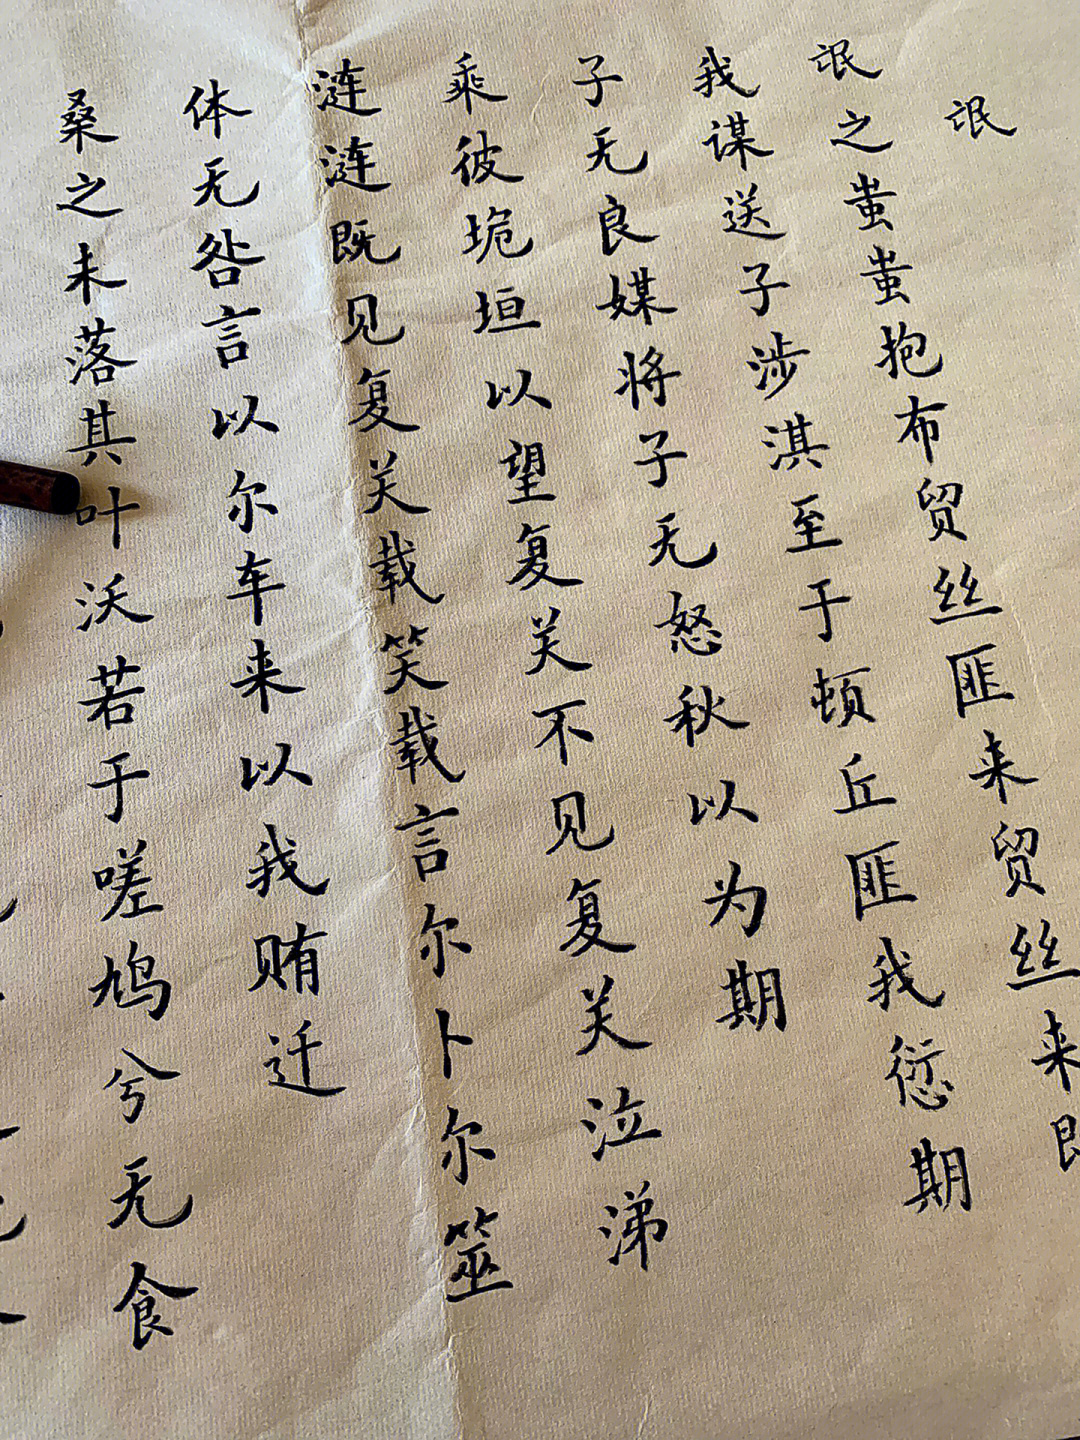 氓
氓之蚩蚩抱布贸丝匪来贸丝来即
我谋送子涉淇至于顿丘匪我愆期
子无良媒将子无怒秋以为期
乘彼垝垣以望复关不见复关泣涕
涟涟既见复关载笑载言尔卜尔筮
体无咎言以尔车来以我贿迁
桑之未落其叶沃若于嗟鸠兮无食